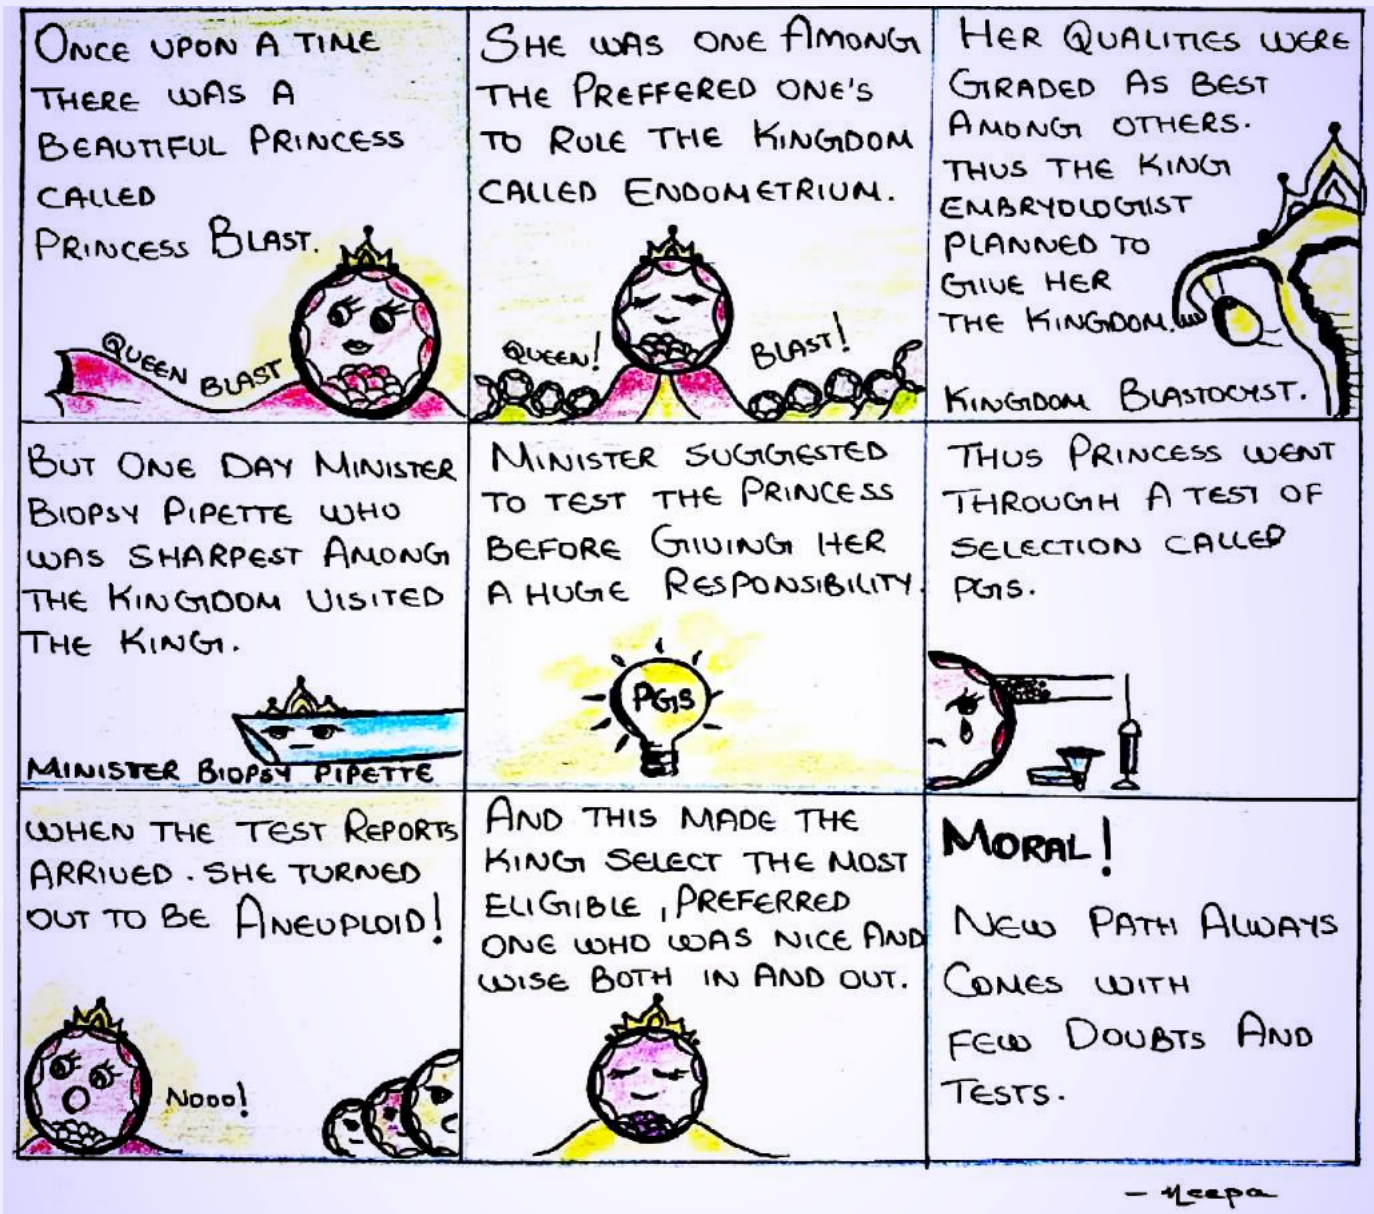 ONCE UPON A TIME
THERE WAS A
BEAUTIFUL PRINCESS
CALLED
PRINCESS BLAST.
QUEEN BLAST
SHE WAS ONE AMONG
THE PREFFERED ONE'S
TO RULE THE KINGDOM
CALLED ENDOMETRIUM.
QUEEN!
BLAST!
HER QUALITIES WERE
GRADED AS BEST
AMONG OTHERS.
THUS THE KING
EMBRYOLOGIST
PLANNED TO
GIVE HER
THE KINGDOM.
KINGDOM BLASTOCYST.
BUT ONE DAY MINISTER
BIOPSY PIPETTE WHO
WAS SHARPEST AMONG
THE KINGDOM VISITED
THE KING.
MINISTER BIOPSY PIPETTE
MINISTER SUGGESTED
TO TEST THE PRINCESS
BEFORE GIVING HER
A HUGE RESPONSIBILITY.
PGS
THUS PRINCESS WENT
THROUGH A TEST OF
SELECTION CALLED
PGS.
WHEN THE TEST REPORTS
ARRIVED. SHE TURNED
OUT TO BE ANEUPLOID!
NOOO!
AND THIS MADE THE
KING SELECT THE MOST
ELIGIBLE, PREFERRED
ONE WHO WAS NICE AND
WISE BOTH IN AND OUT.
MORAL!
NEW PATH ALWAYS
COMES WITH
FEW DOUBTS AND
TESTS.
- Neepa